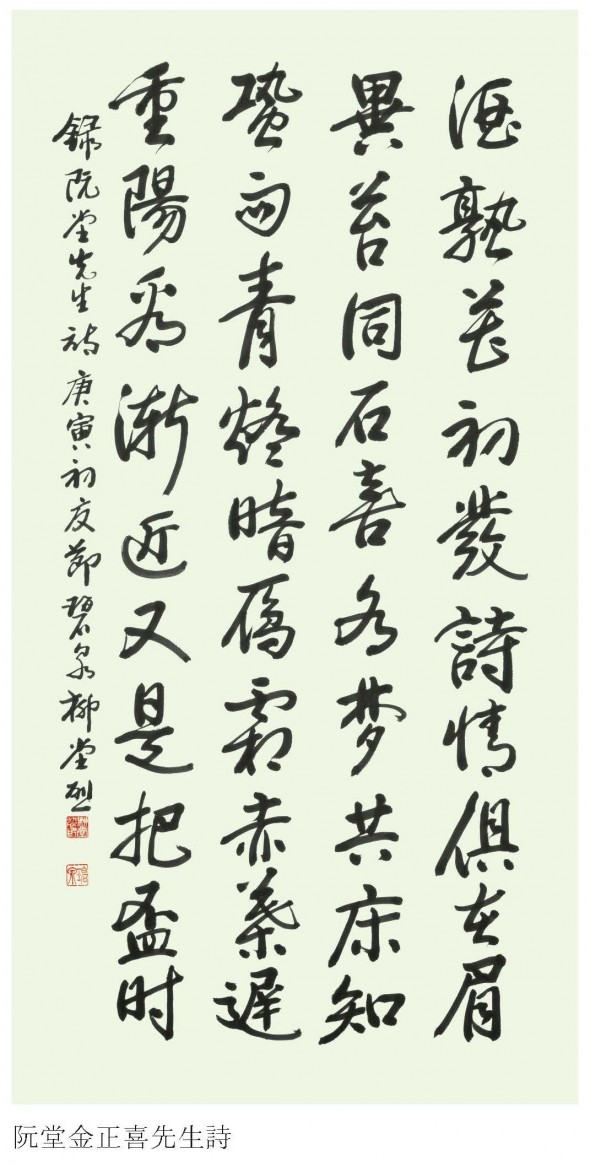 酒熟花初發詩情俱在眉
異苔同石喜各梦共床知
蛩雨青燈暗雁霜赤葉遲
重陽看漸近又是把盃时
錄阮堂先生詩庚寅初夏節碧泉柳堂烈
阮堂金正喜先生詩